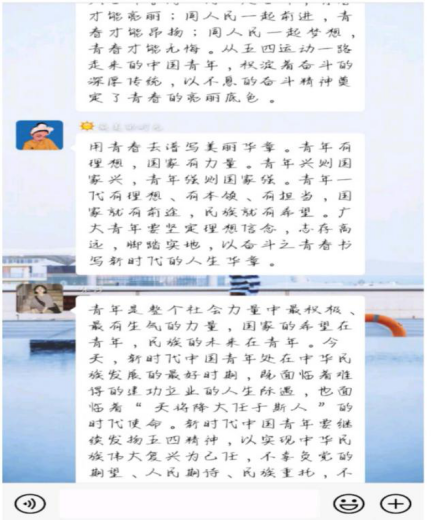 才能亮丽；同人民一起前进，青
春才能昂扬；同人民一起梦想，
青春才能无悔。从五四运动一路
走来的中国青年，积淀着奋斗的
深厚传统，以不息的奋斗精神奠
定了青春的亮丽底色。
用青春去谱写美丽华章。青年有
理想，国家有力量。青年兴则国
家兴，青年强则国家强。青年一
代有理想、有本领、有担当，国
家就有前途，民族就有希望。广
大青年要坚定理想信念，志存高
远，脚踏实地，以奋斗之青春书
写新时代的人生华章。
青年是整个社会力量中最积极、
最有生气的力量，国家的希望在
青年，民族的未来在青年。今
天，新时代中国青年处在中华民
族发展的最好时期，既面临着难
得的建功立业的人生际遇，也面
临着“天将降大任于斯人”的
时代使命。新时代中国青年要继
续发扬五四精神，以实现中华民
族伟大复兴为己任，不辜负党的
期望、人民期待、民族重托，不